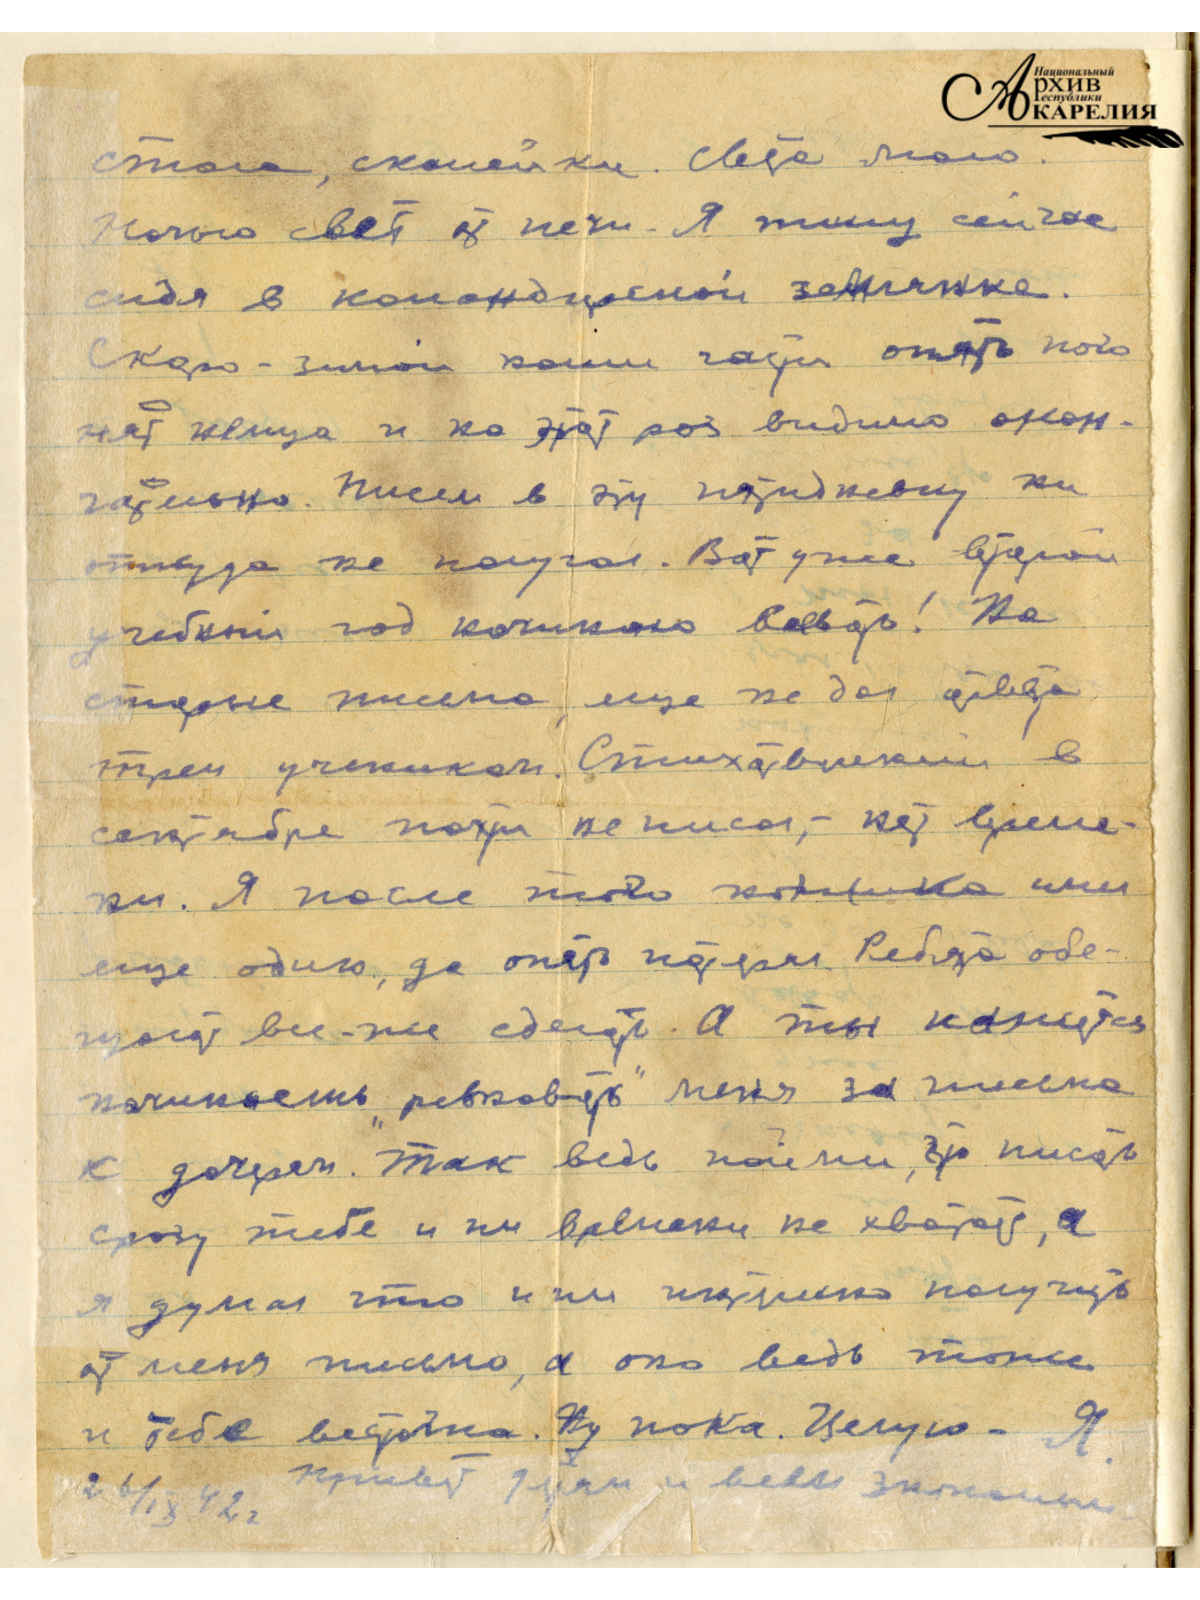 Национальный
Архив
Республики
Карелия
стола, скамейки. Света мало.
Ночью свет от печи. Я пишу сейчас
сидя в командирской землянке.
Скоро - зимой наши части опять пого
нят немца и на этот раз видимо окон-
чательно. Писем в эту пятидневку ни
откуда не получал. Вот уже второй
учебный год начинаю воевать! На
старые письма, еще не дал ответа
трем ученикам. Стихотворений в
сентябре почти не писал, - нет време-
ни. Я после того ножика имел
еще один, да опять потерял. Ребята обе-
щают все-же сделать. А ты кажется
начинаешь „ревновать" меня за письма
к дочерям. Так ведь пойми, что писать
сразу тебе и им времени не хватает, а
я думал что и им интересно получить
от меня письмо, а оно ведь тоже
и тебе весточка. Ну пока. Целую - Я.
26/IX 42г Привет друзьям и всем знакомым.